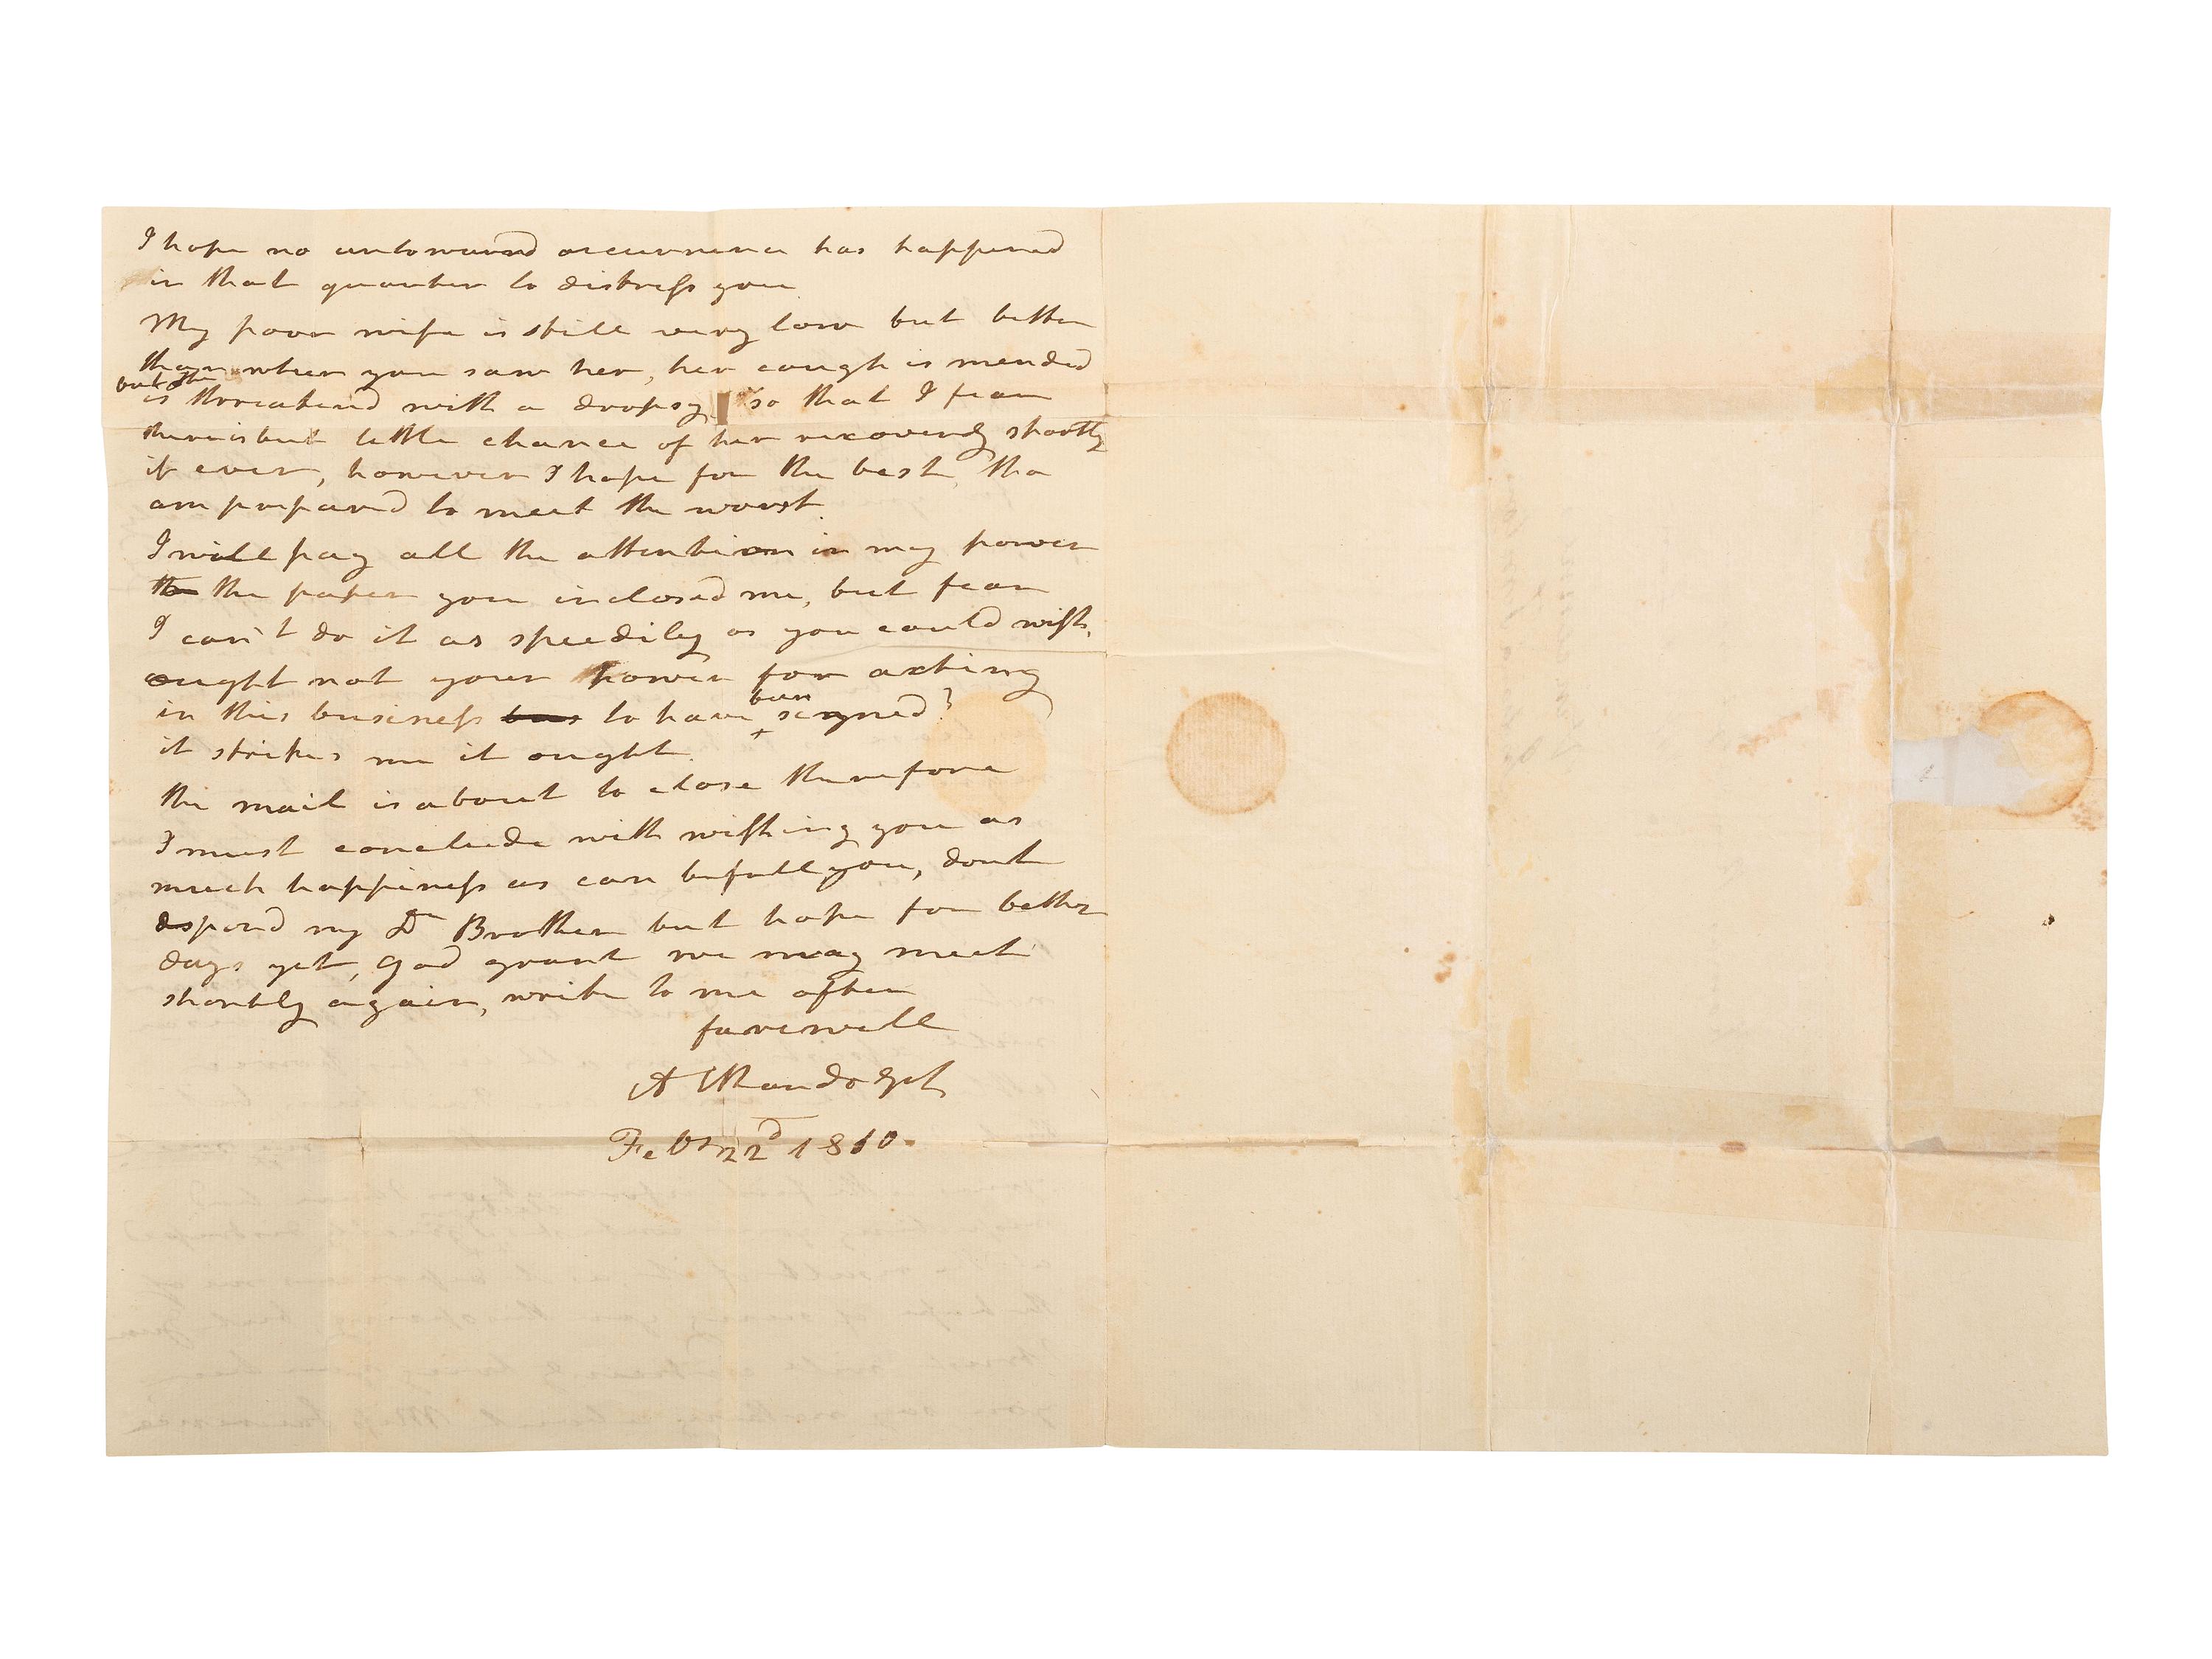 I hope no untoward occurrence has happened
in that quarter to distress you
My poor wife is still very low but better
than when you saw her, her cough is mended
but she
is threatend with a dropsy so that I fear
there is but little chance of her recovery shortly
if ever, however I hope for the best, tho
am prepared to meet the worst.
I will pay all the attention in my power
to the paper you inclosed me, but fear
I can't do it as speedily as you could wish,
ought not your power for acting
been
in this business to have signed?
it strikes me it ought.
the mail is about to close therefore
I must conclude with wishing you as
much happiness as can befall you, dont
despond my Dr Brother but hope for better
days yet, God grant we may meet
shortly again, write to me often
farewell
A Randolph
Feby 22d 1810.